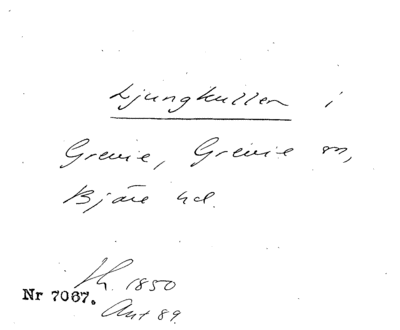 Ljungkullen i
Grevie, Grevie sn,
Bjäre hd.
Th. 1850
Nr 7067.
Ant 89.